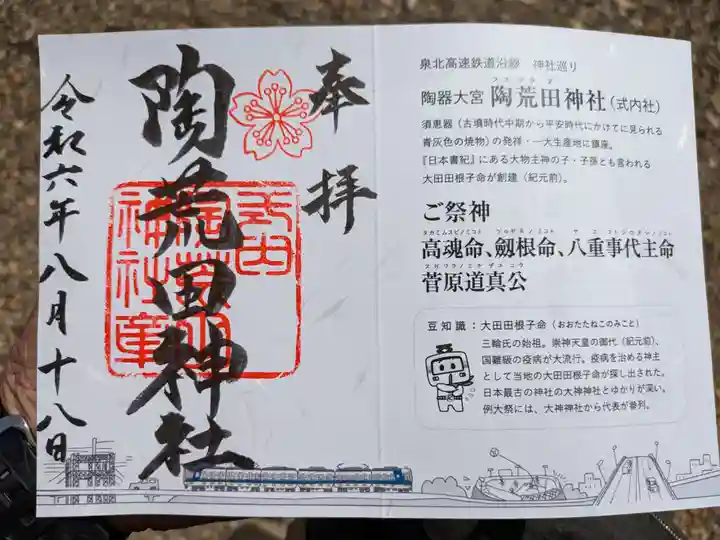 奉拝
陶荒田神社
令和六年八月十八日
式内
陶荒田
神社章
泉北高速鉄道沿線 神社巡り
陶器大宮 陶荒田神社(式内社)
須恵器(古墳時代中期から平安時代にかけてに見られる
青灰色の焼物)の発祥・一大生産地に鎮座。
『日本書紀』にある大物主神の子・子孫とも言われる
大田田根子命が創建(紀元前)。
ご祭神
高魂命、劔根命、八重事代主命
菅原道真公
豆知識:大田田根子命(おおたたねこのみこと)
三輪氏の始祖。崇神天皇の御代(紀元前)、
国難級の疫病が大流行。疫病を治める神主
として当地の大田田根子命が探し出された。
日本最古の神社の大神神社とゆかりが深い。
例大祭には、大神神社から代表が参列。